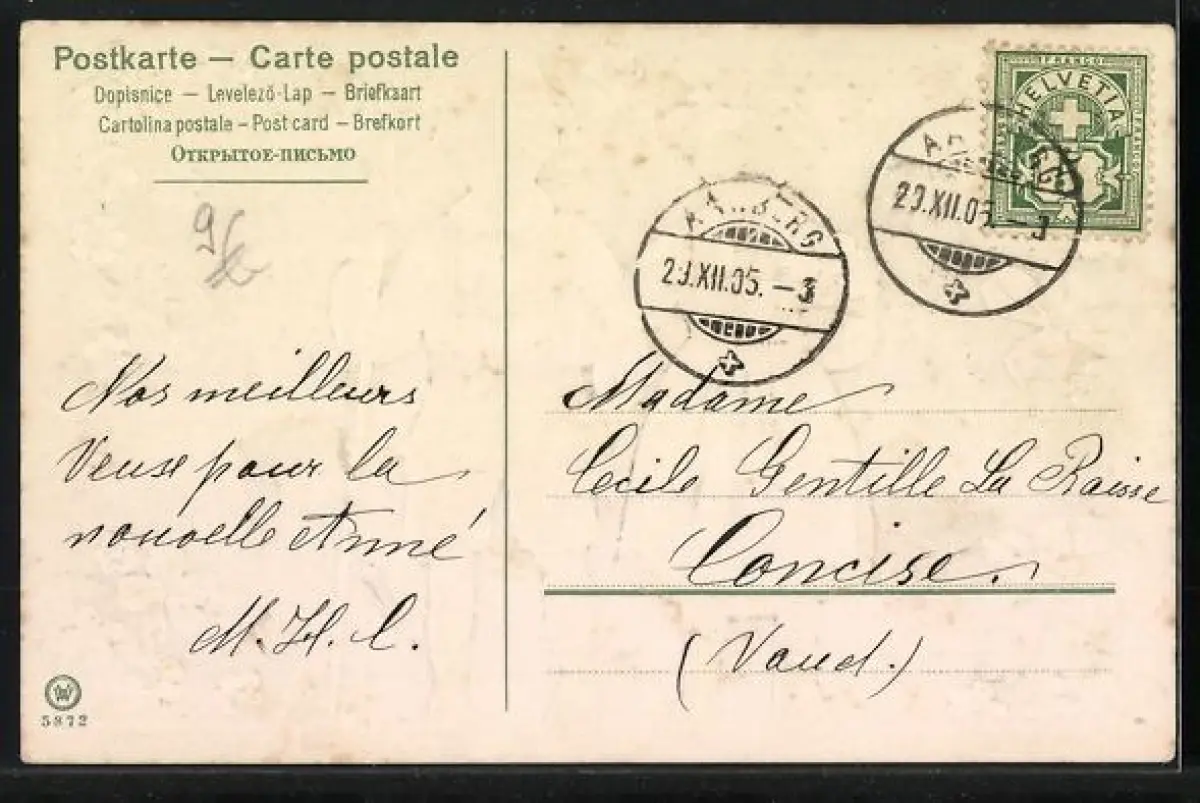 Postkarte — Carte postale
Dopisnice — Levelező-Lap — Briefkaart
Cartolina postale – Post card – Brefkort
Открытое-письмо
Nos meilleurs
Veuse pour la
nouvelle Anné
M. H. C.
5872
FRANCO
HELVETIA
FRANCO
29.XII.05. – 3
AARBERG
29.XII.05. – 3
Madame
Cécile Gentille La Raisse
Concise.
(Vaud.)